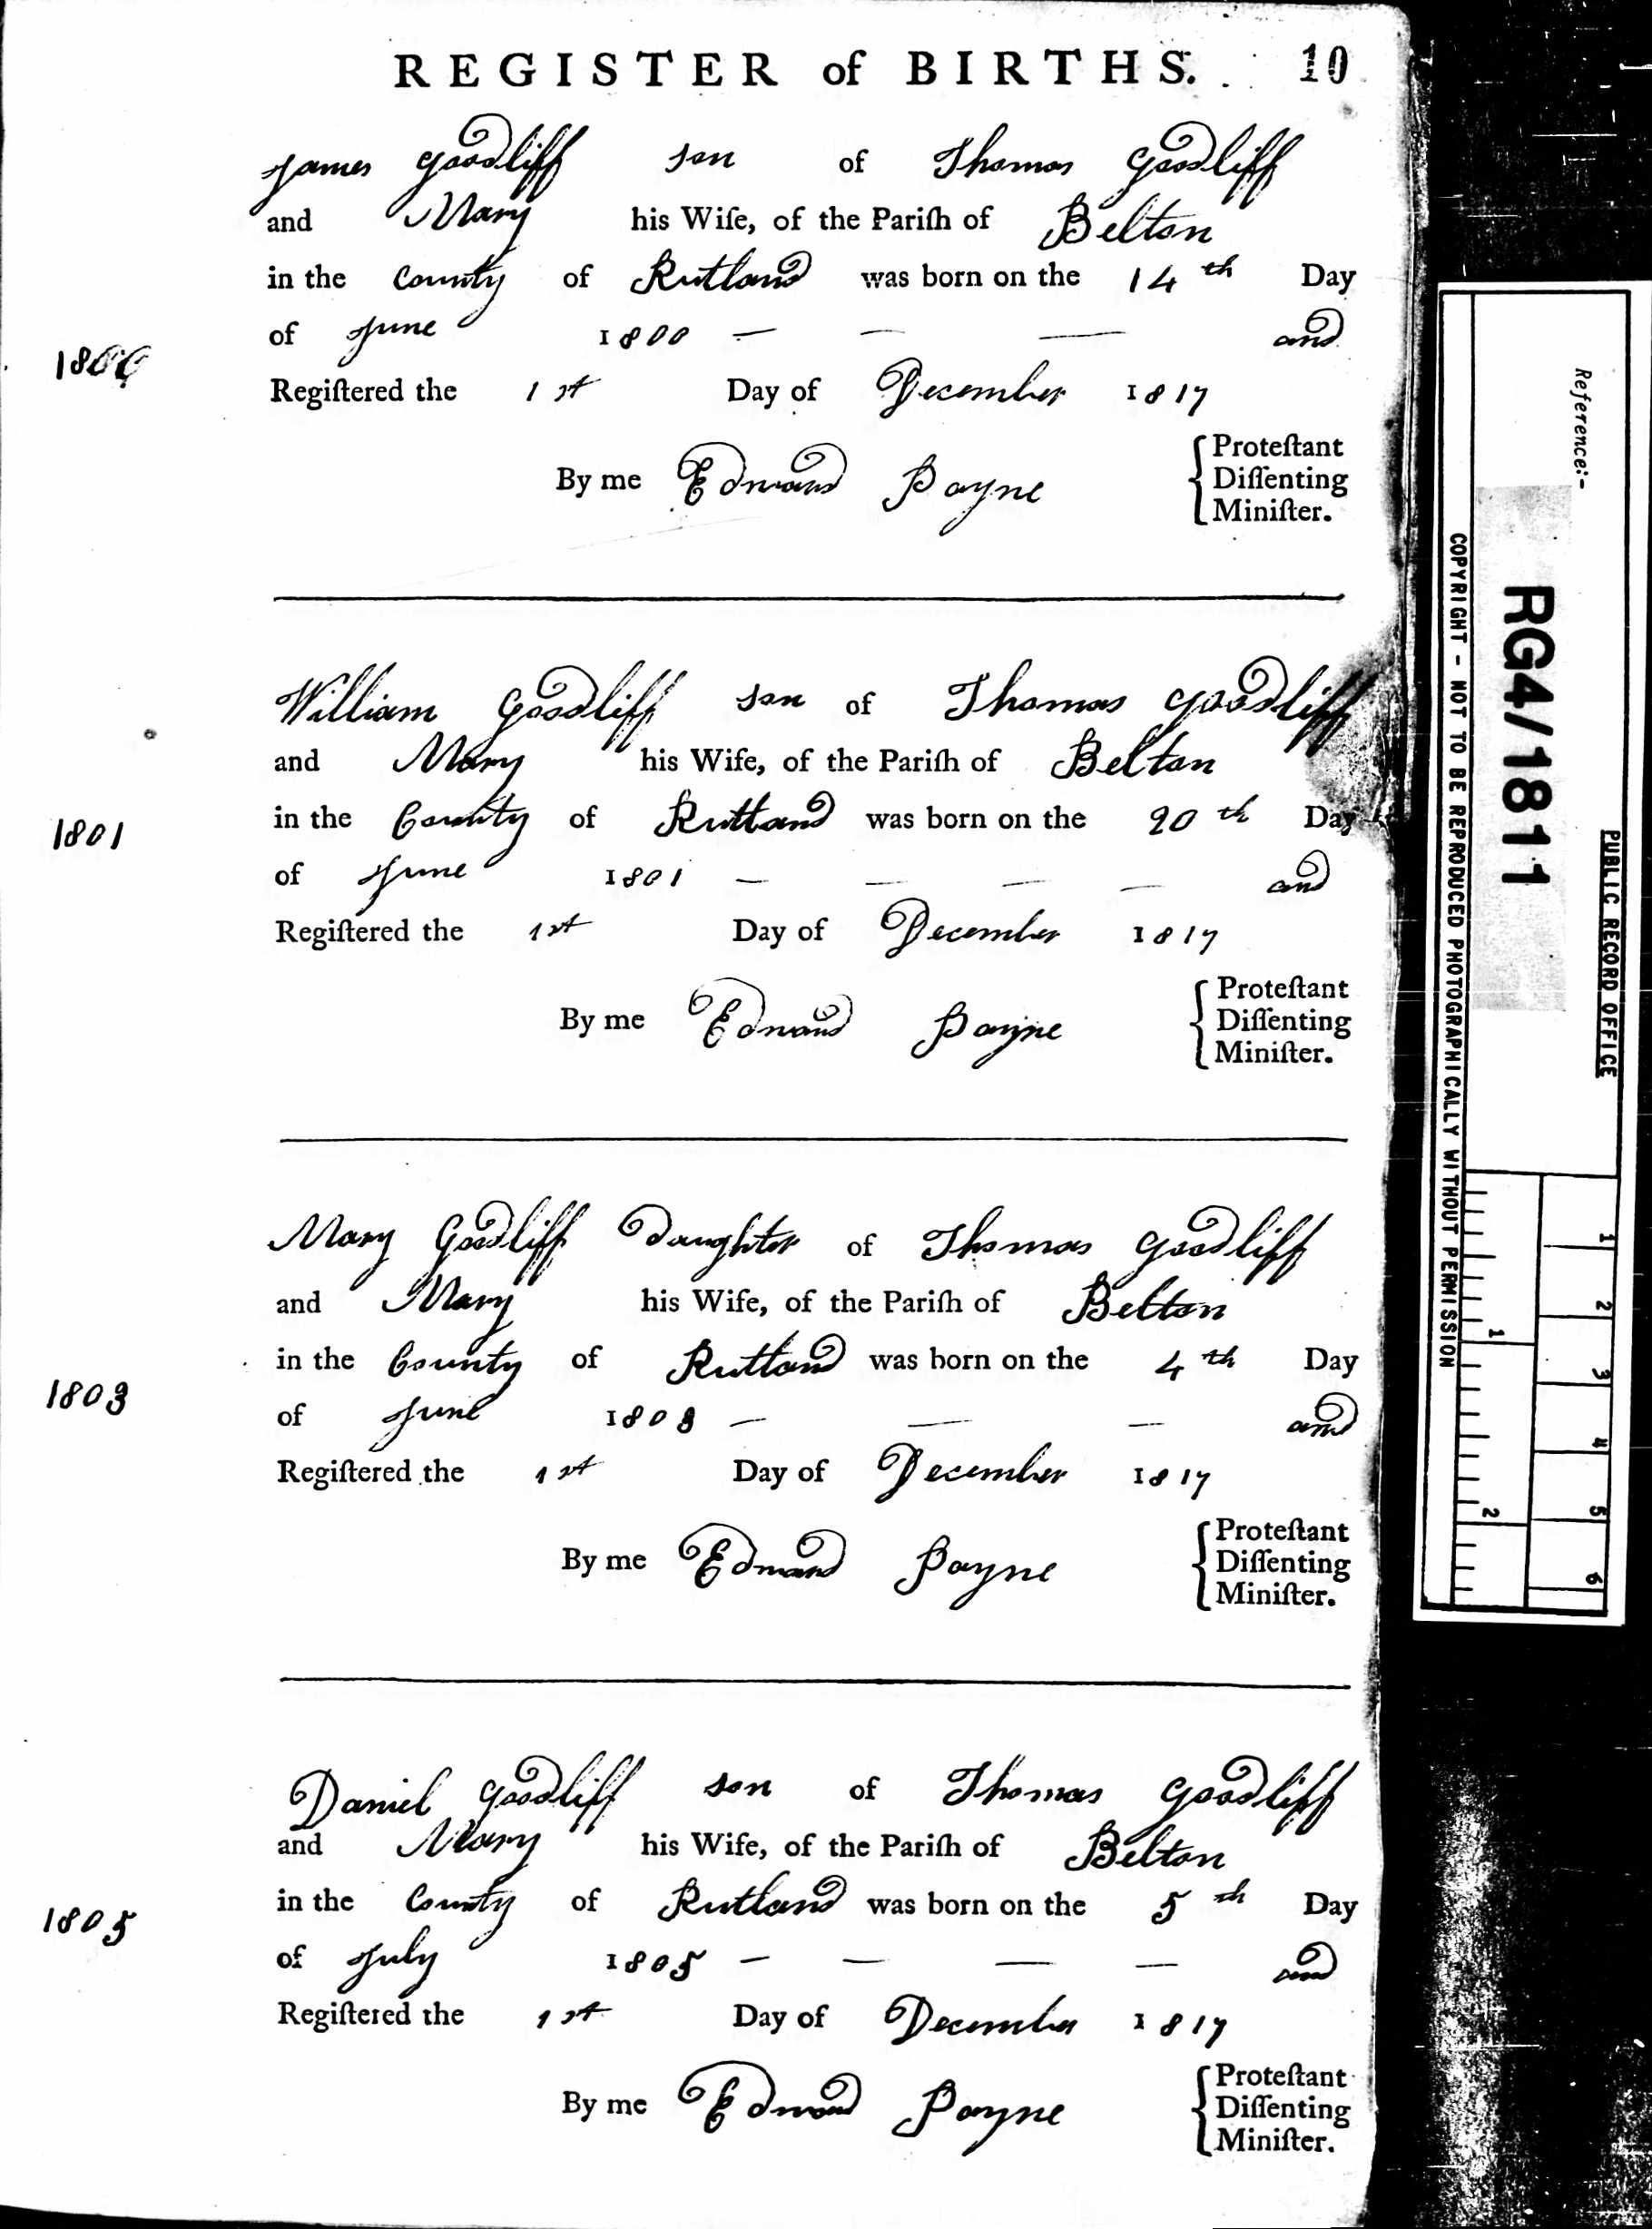 REGISTER of BIRTHS. 10
James Goodliff son of Thomas Goodliff
and Mary his Wife, of the Pariſh of Belton
in the County of Rutland was born on the 14th Day
of June 1800 — — — and
1800
Regiſtered the 1st Day of December 1817
By me Edward Payne { Proteſtant
Diſſenting
Miniſter.
William Goodliff son of Thomas Goodliff
and Mary his Wife, of the Pariſh of Belton
in the County of Rutland was born on the 20th Day
1801
of June 1801 — — — — and
Regiſtered the 1st Day of December 1817
By me Edward Payne { Proteſtant
Diſſenting
Miniſter.
Mary Goodliff Daughter of Thomas Goodliff
and Mary his Wife, of the Pariſh of Belton
in the County of Rutland was born on the 4th Day
1803
of June 1803 — — — and
Regiſtered the 1st Day of December 1817
By me Edward Payne { Proteſtant
Diſſenting
Miniſter.
Daniel Goodliff son of Thomas Goodliff
and Mary his Wife, of the Pariſh of Belton
in the County of Rutland was born on the 5th Day
1805
of July 1805 — — — — and
Regiſtered the 1st Day of December 1817
By me Edward Payne { Proteſtant
Diſſenting
Miniſter.
PUBLIC RECORD OFFICE
Reference:-
RG4/1811
COPYRIGHT - NOT TO BE REPRODUCED PHOTOGRAPHICALLY WITHOUT PERMISSION
1 2 3 4 5 6
1 2